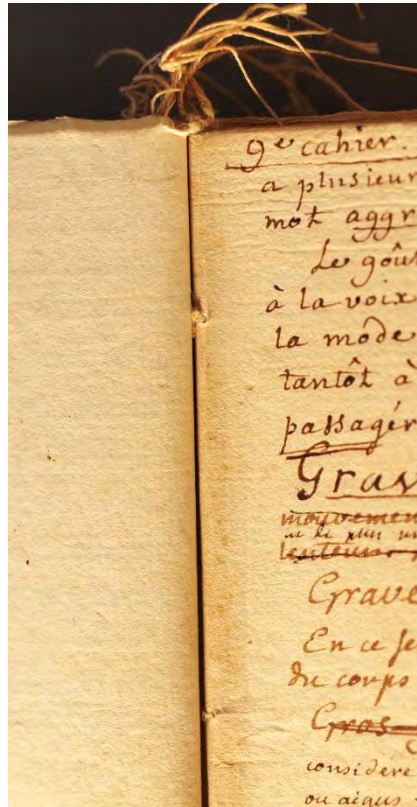 9e cahier.
a plusieur
mot aggr
Le goût
à la voix
la mode
tantôt à
passagér
Grav
mouvemen
et le plus
lenteur
Grave
En ce se
du corps
Gros
considere
ou aigus